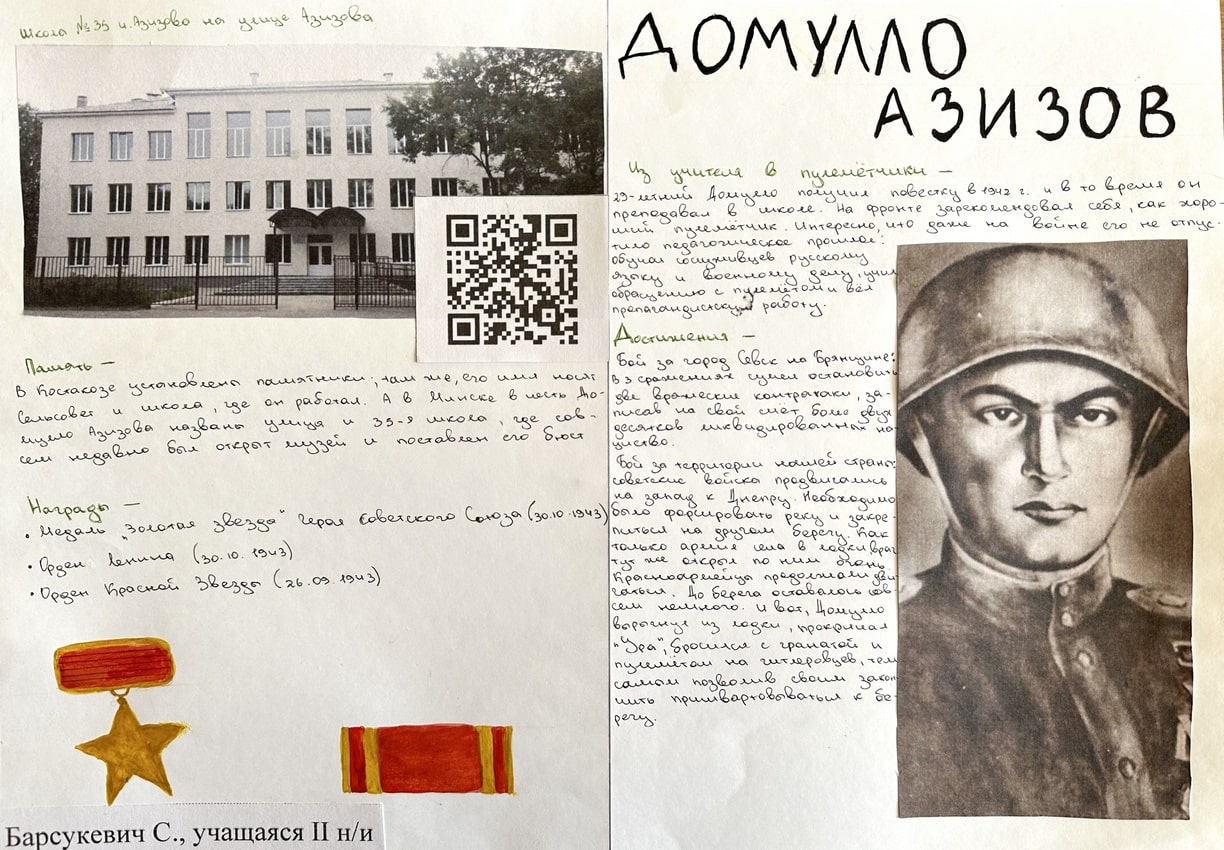 Школа №35 и. Азизова на улице Азизова
Память —
В Костакозе установлены памятники; там же, его имя носят
сельсовет и школа, где он работал. А в Минске в честь До-
мулло Азизова названы улица и 35-я школа, где сов-
сем недавно был открыт музей и поставлен его бюст
Награды —
• Медаль „Золотая звезда“ героя Советского Союза (30.10.1943)
• Орден Ленина (30.10.1943)
• Орден Красной Звезды (26.09.1943)
Барсукевич С., учащаяся II н/и
ДОМУЛЛО
АЗИЗОВ
Из учителя в пулемётчики —
29-летний Домулло получил повестку в 1942 г. и в то время он
преподавал в школе. На фронте зарекомендовал себя, как хоро-
ший пулемётчик. Интересно, что даже на войне его не отпус-
тило педагогическое прошлое:
обучал сослуживцев русскому
языку и военному делу, учил
обращению с пулемётом и вёл
пропагандистскую работу.
Достижения —
Бой за город Севск на Брянщине:
в 3 сражениях сумел остановить
две вражеские контратаки, за-
писав на свой счёт более двух
десятков ликвидированных на-
цистов.
Бой за территории нашей страны:
советские войска продвигались
на запад к Днепру. Необходимо
было форсировать реку и закре-
питься на другом берегу. Как
только армия села в лодки враг
тут же открыл по ним огонь.
Красноармейцы продолжали дви-
гаться. До берега оставалось сов-
сем немного. И вот, Домулло
выпрыгнул из лодки, прокричал
"Ура", бросился с гранатой и
пулемётом на гитлеровцев, тем
самым позволив своим закон-
чить пришвартовываться к бе-
регу.